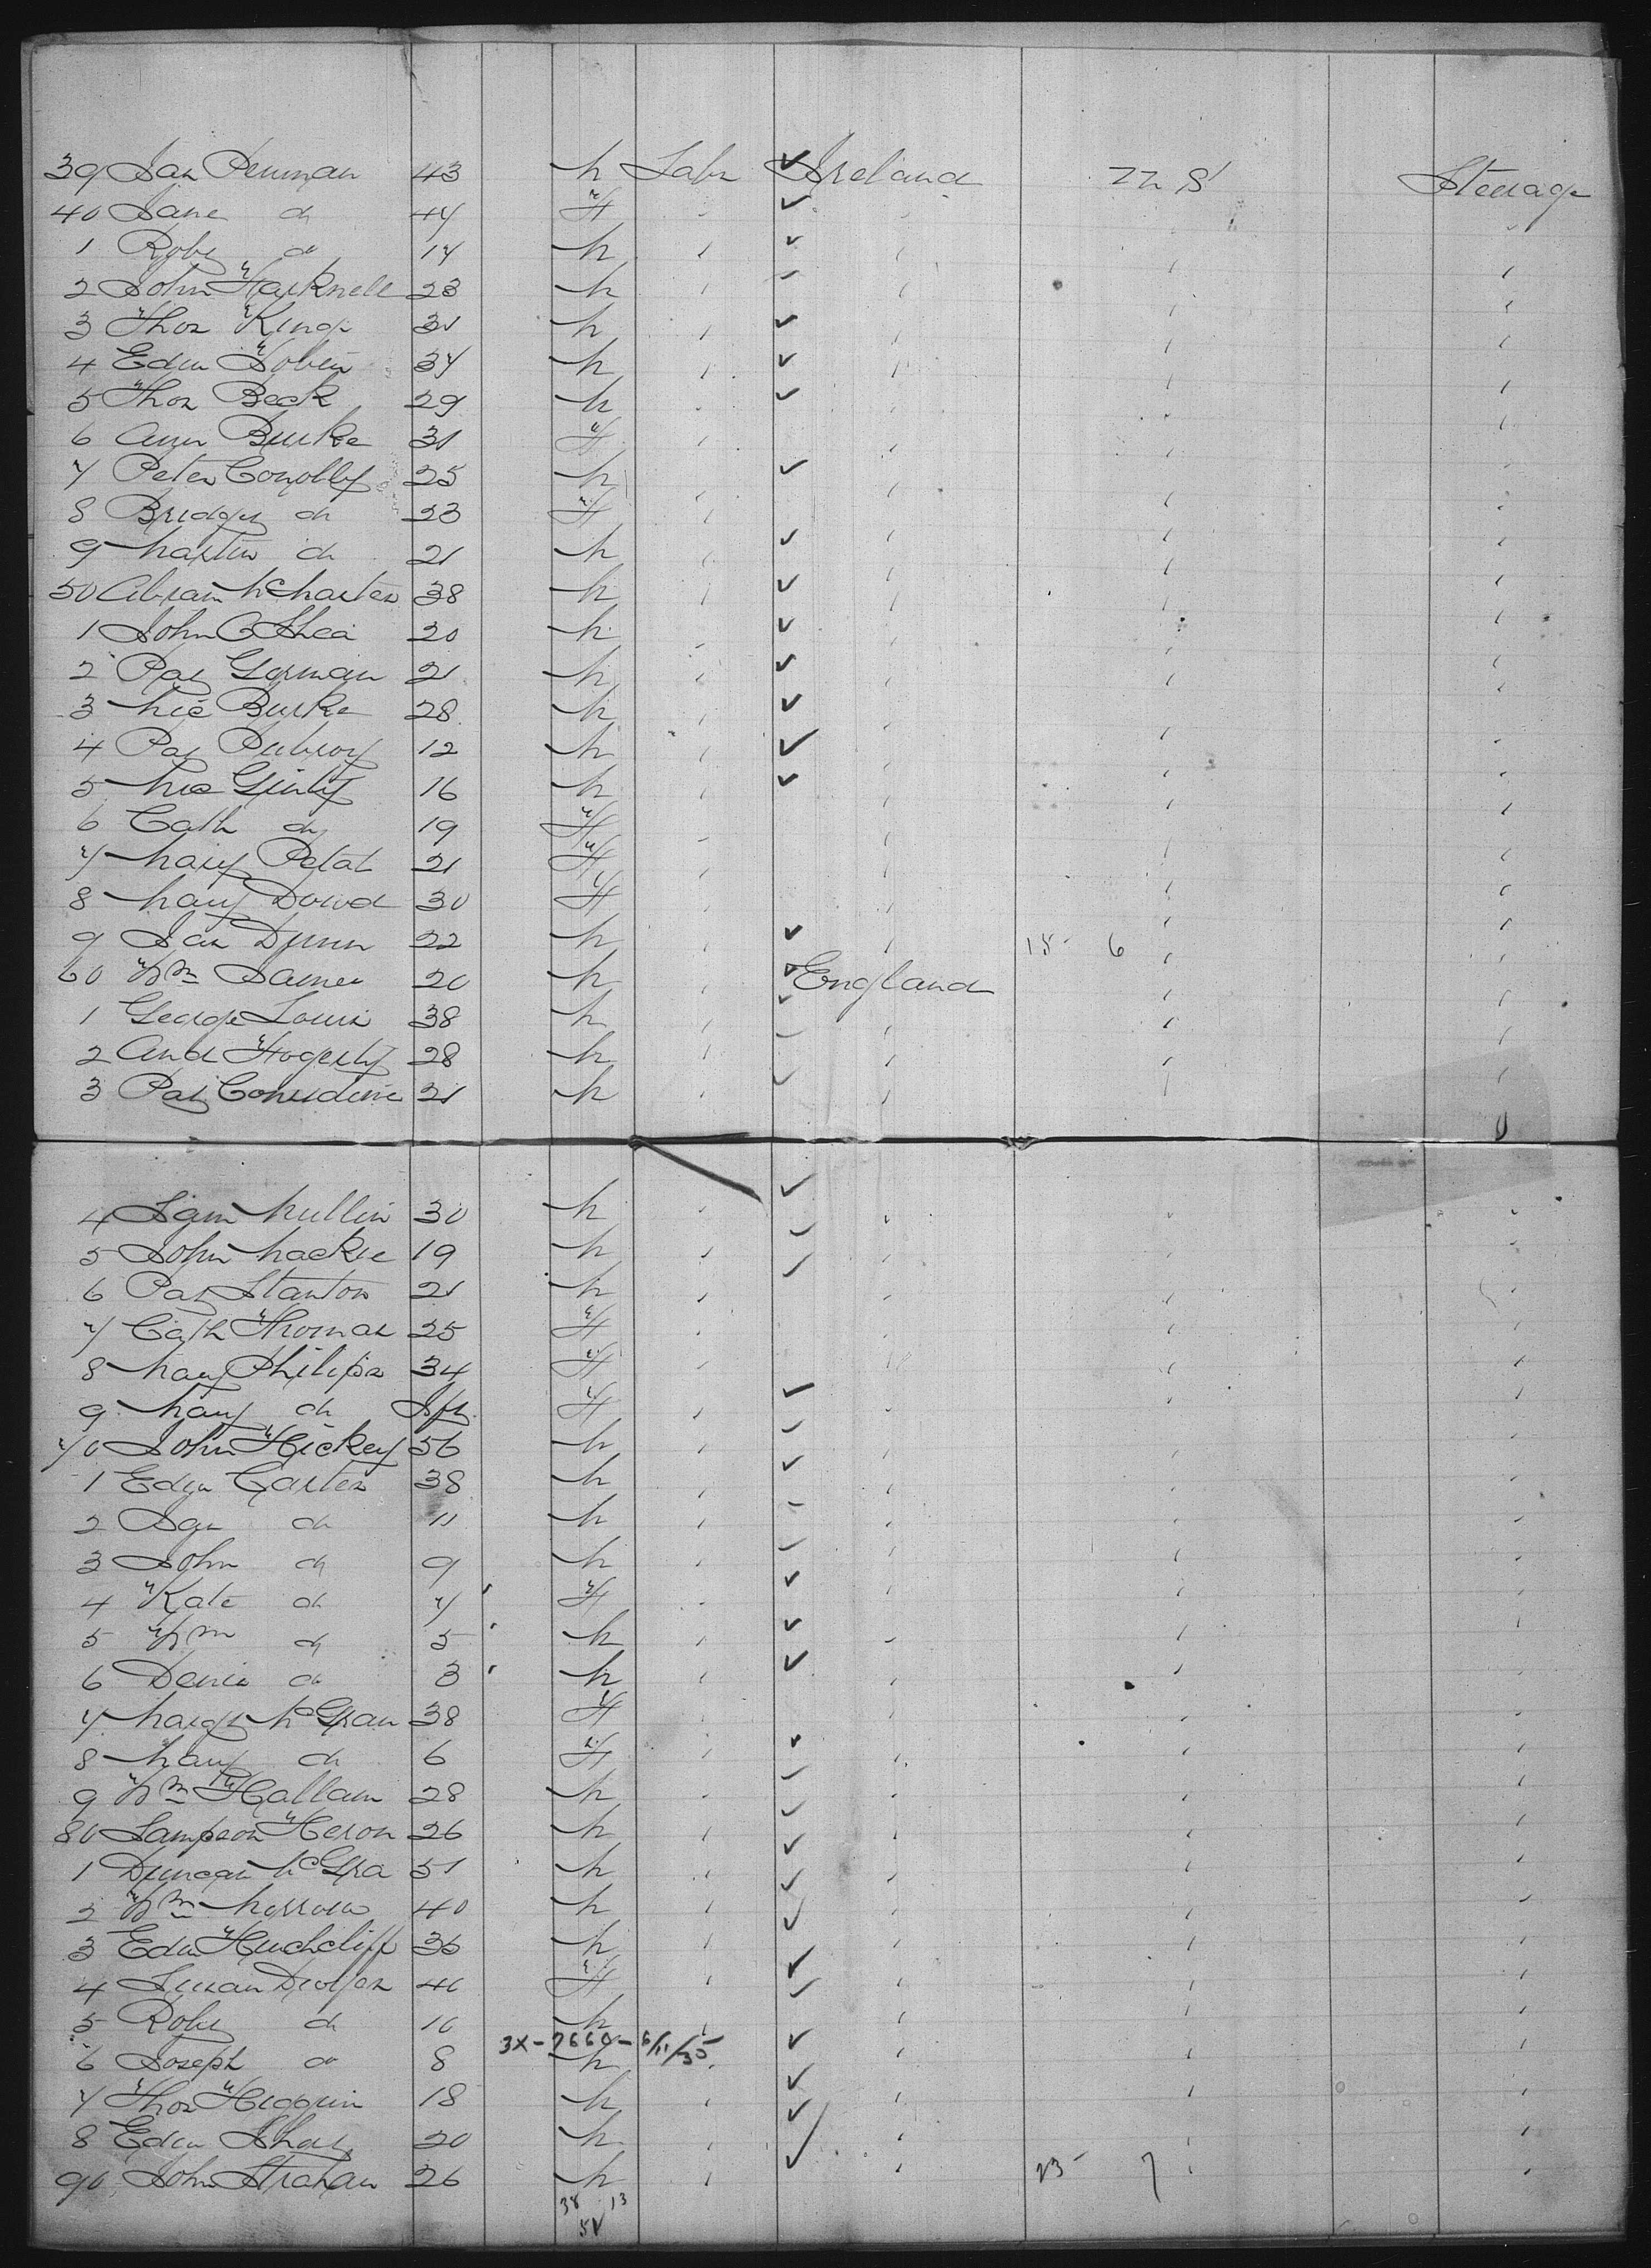 39 Jas Penman 43 M Labr Ireland U S Steerage
40 Jane do 44 F
1 Robt do 14 M
2 John Hacknell 23 M
3 Thos King 31 M
4 Edw 34 M
5 Thos Beck 29 M
6 Ann Burke 31 F
7 Peter Conolly 25 M
8 Bridget do 23 F
9 Martin do 21 M
50 Abram McMaster 38 M
1 John O Shea 20 M
2 Pat Gorman 21 M
3 Mic Burke 28 M
4 Pat 12 M
5 Mic Ginty 16 M
6 Cath do 19 F
7 Mary 21 F
8 Mary Dowd 30 F
9 Jas Dunn 22 M 15 6
60 Wm James 20 M England
1 George Louis 38 M
2 And Hogerty 28 M
3 Pat Considine 21 M
4 Mullin 30 M
5 John Mackie 19 M
6 Pat Stanton 21 M
7 Cath Thomas 25 F
8 Mary Philips 34 F
9 Mary do Inft F
70 John Hickey 56 M
1 Edw Carter 38 M
2 do 11 M
3 John do 9 M
4 Kate do 7 F
5 Wm do 5 M
6 Denis do 3 M
7 Margt McGrau 38 F
8 Mary do 6 F
9 Wm Hallam 28 M
80 Sampson Heron 26 M
1 Duncan McGra 51 M
2 Wm Morrow 40 M
3 Edw Hinchcliff 36 M
4 Susan 40 F
5 Robt do 10 M
3X-7660-6/11/35
6 Joseph do 8 M
7 Thos Higgin 18 M
8 Edw 20 M
90 John Strahan 26 M 23 7
38 13
51